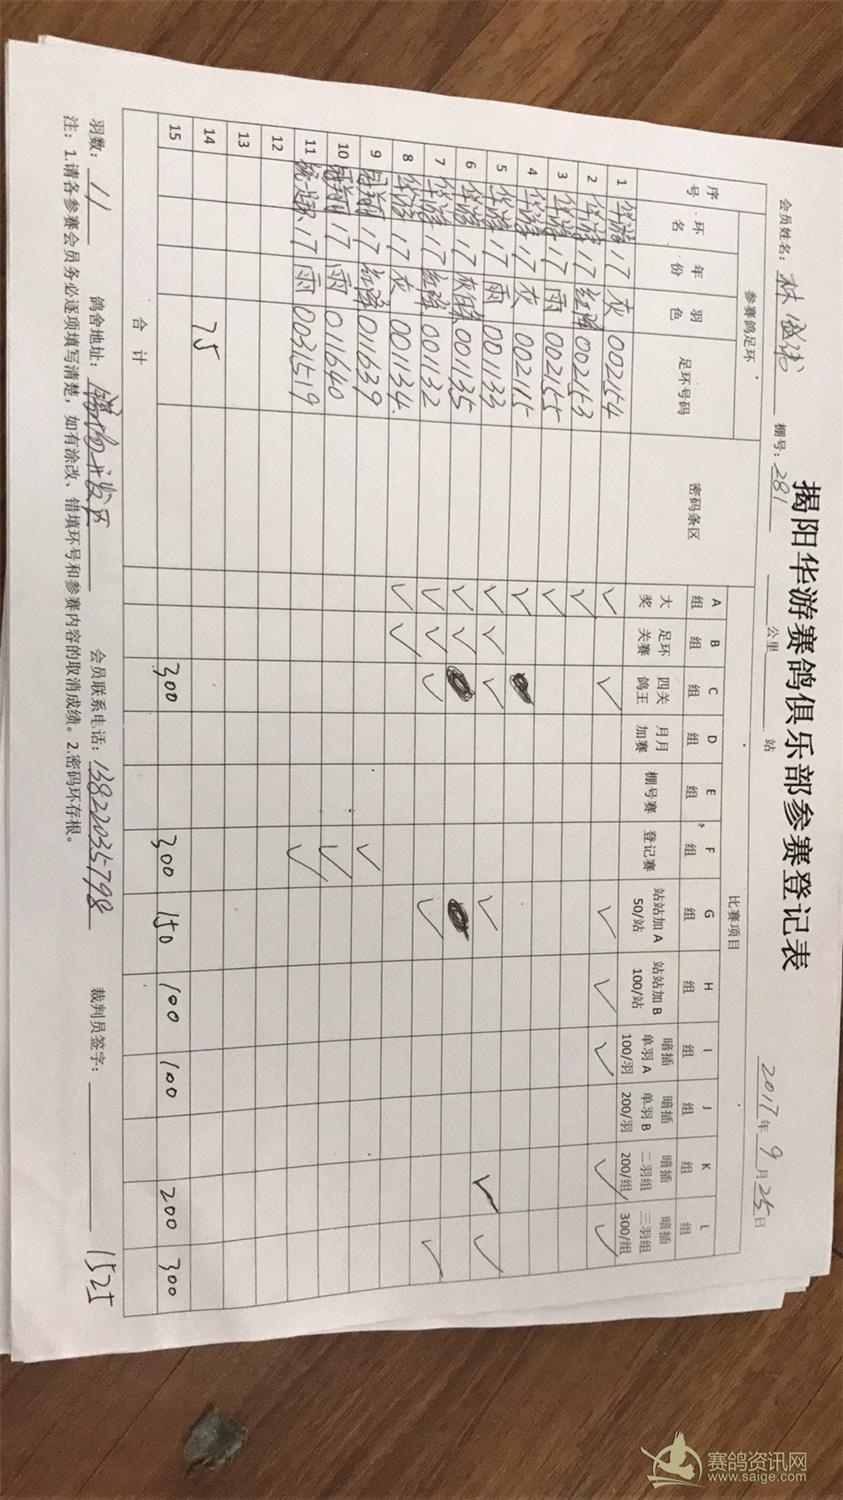 揭阳华游赛鸽俱乐部参赛登记表
2017年9月25日
会员姓名：林 棚号：281 公里 站
序号 参赛鸽足环 密码条区 比赛项目
环名 年份 羽色 足环号码 A组 B组 C组 D组 E组 F组 G组 H组 I组 J组 K组 L组
大奖 足环关赛 四关鸽王 月月加赛 棚号赛 登记赛 站站加A 50/站 站站加B 100/站 暗插单羽A 100/羽 暗插单羽B 200/羽 暗插二羽组 200/组 暗插三羽组 300/组
1 华游 17 灰 002154 ✓ ✓ ✓ ✓ ✓ ✓ ✓
2 华游 17 红 002153 ✓
3 华游 17 雨 002155 ✓
4 华游 17 灰 002115 ✓
5 华游 17 雨 001133 ✓ ✓ ✓ ✓ ✓ ✓
6 华游 17 灰 001135 ✓ ✓
7 华游 17 红 001132 ✓ ✓ ✓ ✓ ✓
8 华游 17 灰 001134 ✓ ✓
9 17 红 011639 ✓
10 17 雨 011640 ✓
11 17 雨 0031519 ✓
12
13
14 75
15 300 300 150 100 100 200 300
合计
羽数：11 鸽舍地址：开发区 会员联系电话：13822035798 裁判员签字： 1525
注：1.请各参赛会员务必逐项填写清楚，如有涂改、错填环号和参赛内容的取消成绩。2.密码环存根。
赛鸽资讯网
www.saige.com